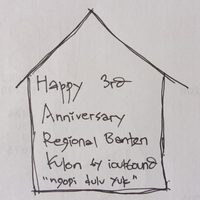 Happy 3rd
Anniversary
Regional Banten
Kulon by icutbound
"ngopi dulu yuk"